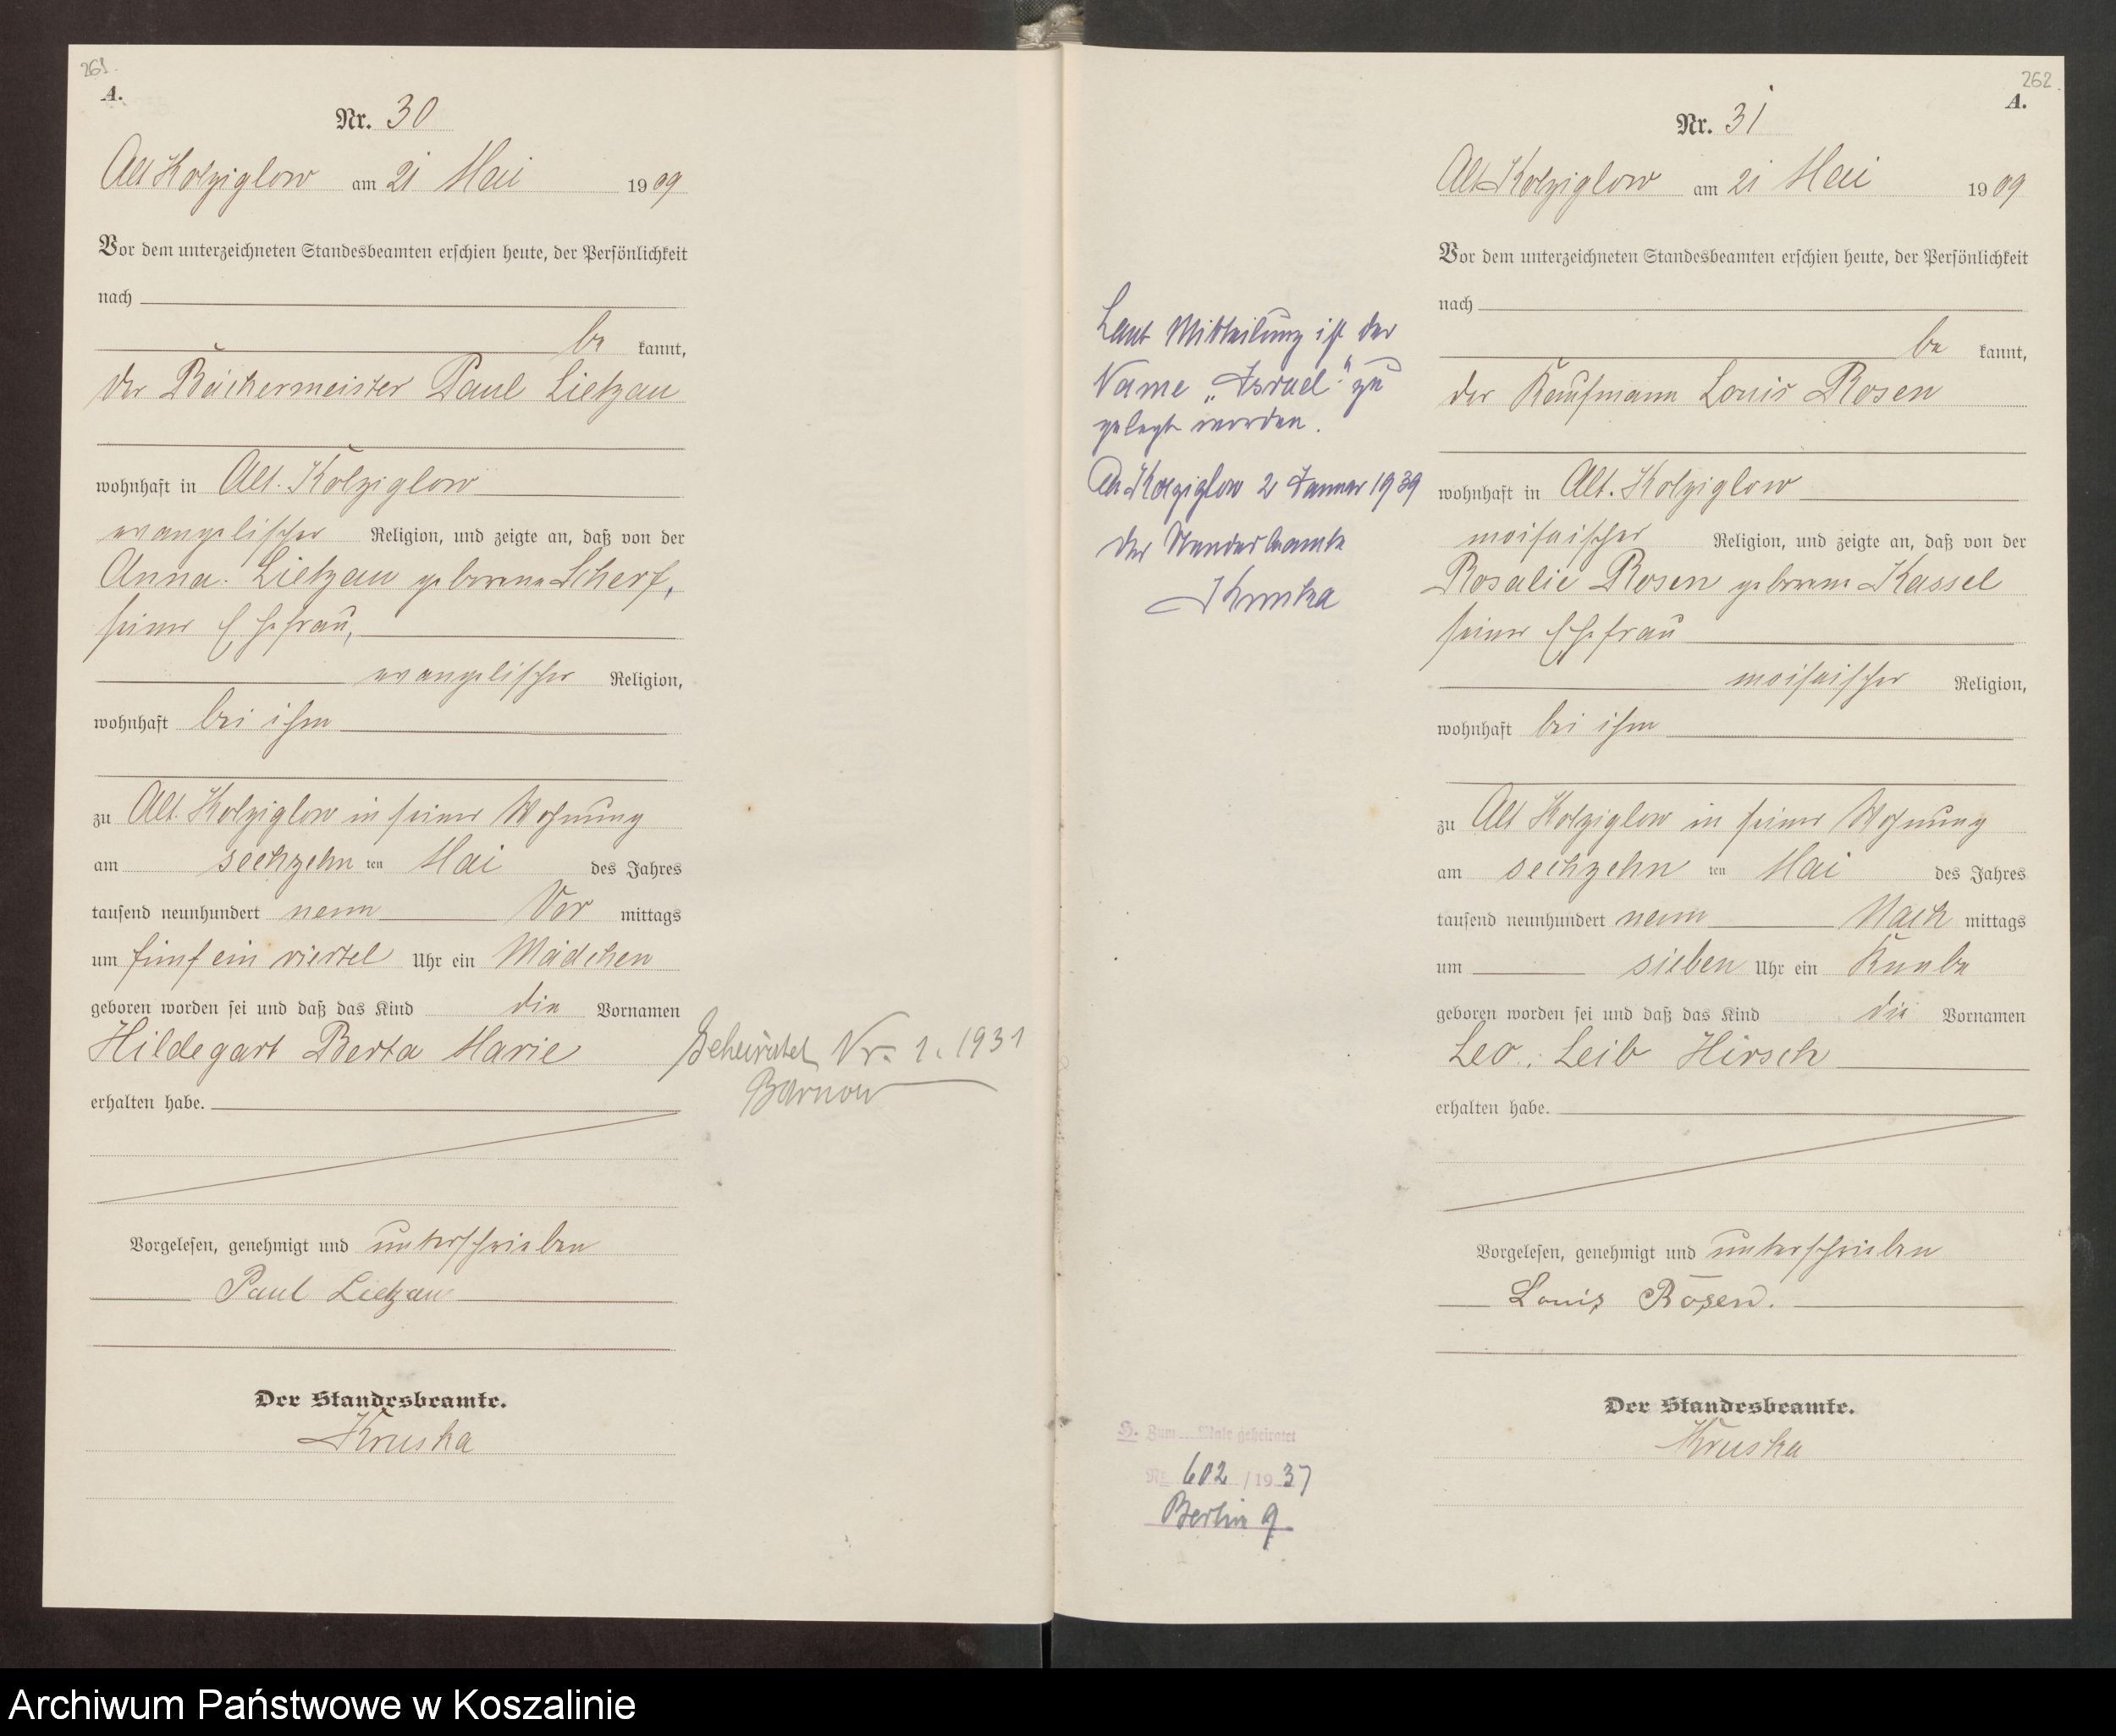 261.
A.
Nr. 30
Alt Kolziglow am 21 Mai 1909
Vor dem unterzeichneten Standesbeamten erschien heute, der Persönlichkeit
nach
be kannt,
der Bäckermeister Paul Lietzau
wohnhaft in Alt. Kolziglow
evangelischer Religion, und zeigte an, daß von der
Anna Lietzau geborene Scherf,
seiner Ehefrau,
evangelischer Religion,
wohnhaft bei ihm
zu Alt. Kolziglow in seiner Wohnung
am sechzehn ten Mai des Jahres
tausend neunhundert neun Vor mittags
um fünf ein viertel Uhr ein Mädchen
geboren worden sei und daß das Kind die Vornamen
Hildegart Berta Marie
erhalten habe.
Vorgelesen, genehmigt und unterschrieben
Paul Lietzau
Der Standesbeamte.
Kruska
Geheiratet Nr. 1. 1931
Barnow
262.
A.
Nr. 31
Alt Kolziglow am 21 Mai 1909
Vor dem unterzeichneten Standesbeamten erschien heute, der Persönlichkeit
nach
be kannt,
der Kaufmann Louis Rosen
wohnhaft in Alt. Kolziglow
moisaischer Religion, und zeigte an, daß von der
Rosalie Rosen geborene Kassel
seiner Ehefrau
moisaischer Religion,
wohnhaft bei ihm
zu Alt Kolziglow in seiner Wohnung
am sechzehn ten Mai des Jahres
tausend neunhundert neun Nach mittags
um sieben Uhr ein Knabe
geboren worden sei und daß das Kind die Vornamen
Leo, Leib Hirsch
erhalten habe.
Vorgelesen, genehmigt und unterschrieben
Louis Rosen.
Der Standesbeamte.
Kruska
Laut Mitteilung ist der
Name „Israel“ zu
gelegt worden.
Alt Kolziglow 2 Januar 1939
Der Standesbeamte
Kruska
H. Zum ... Male geheiratet
Nr. 602 / 1937
Berlin 9
Archiwum Państwowe w Koszalinie